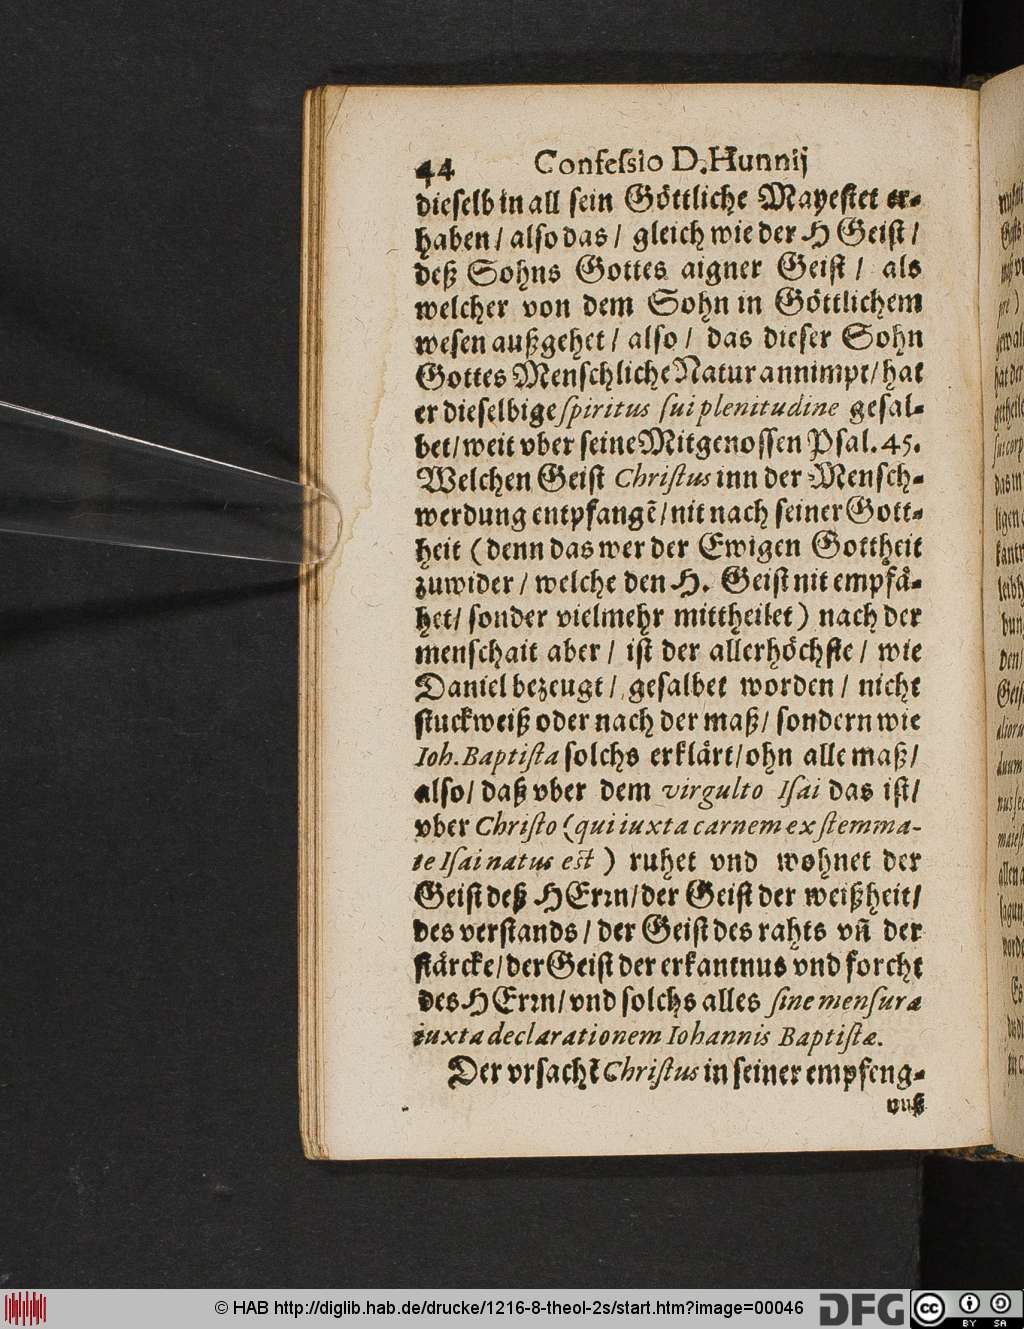 44 Confeſsio D. Hunnij
dieſelb in all ſein Göttliche Mayeſtet er-
haben / alſo das / gleich wie der H Geiſt /
deß Sohns Gottes aigner Geiſt / als
welcher von dem Sohn in Göttlichem
weſen außgehet / alſo / das dieſer Sohn
Gottes Menſchliche Natur annimpt / hat
er dieſelbige ſpiritus ſui plenitudine geſal-
bet / weit vber ſeine Mitgenoſſen Pſal. 45.
Welchen Geiſt Chriſtus inn der Menſch-
werdung entpfangẽ / nit nach ſeiner Gott-
heit (denn das wer der Ewigen Gottheit
zuwider / welche den H. Geiſt nit empfå-
het / ſonder vielmehr mittheilet) nach der
menſchait aber / iſt der allerhöchſte / wie
Daniel bezeugt / geſalbet worden / nicht
ſtuckweiß oder nach der maß / ſondern wie
Ioh. Baptiſta ſolchs erklårt / ohn alle maß /
alſo / daß vber dem virgulto Iſai das iſt /
vber Chriſto (qui iuxta carnem ex ſtemma-
te Iſai natus eſt) ruhet vnd wohnet der
Geiſt deß HErꝛn / der Geiſt der weißheit /
des verſtands / der Geiſt des rahts vñ der
ſtårcke / der Geiſt der erkantnus vnd forcht
des HErꝛn / vnd ſolchs alles ſine menſura
iuxta declarationem Iohannis Baptiſtæ.
Der vrſachẽ Chriſtus in ſeiner empfeng-
nuß
© HAB http://diglib.hab.de/drucke/1216-8-theol-2s/start.htm?image=00046 DFG cc BY SA